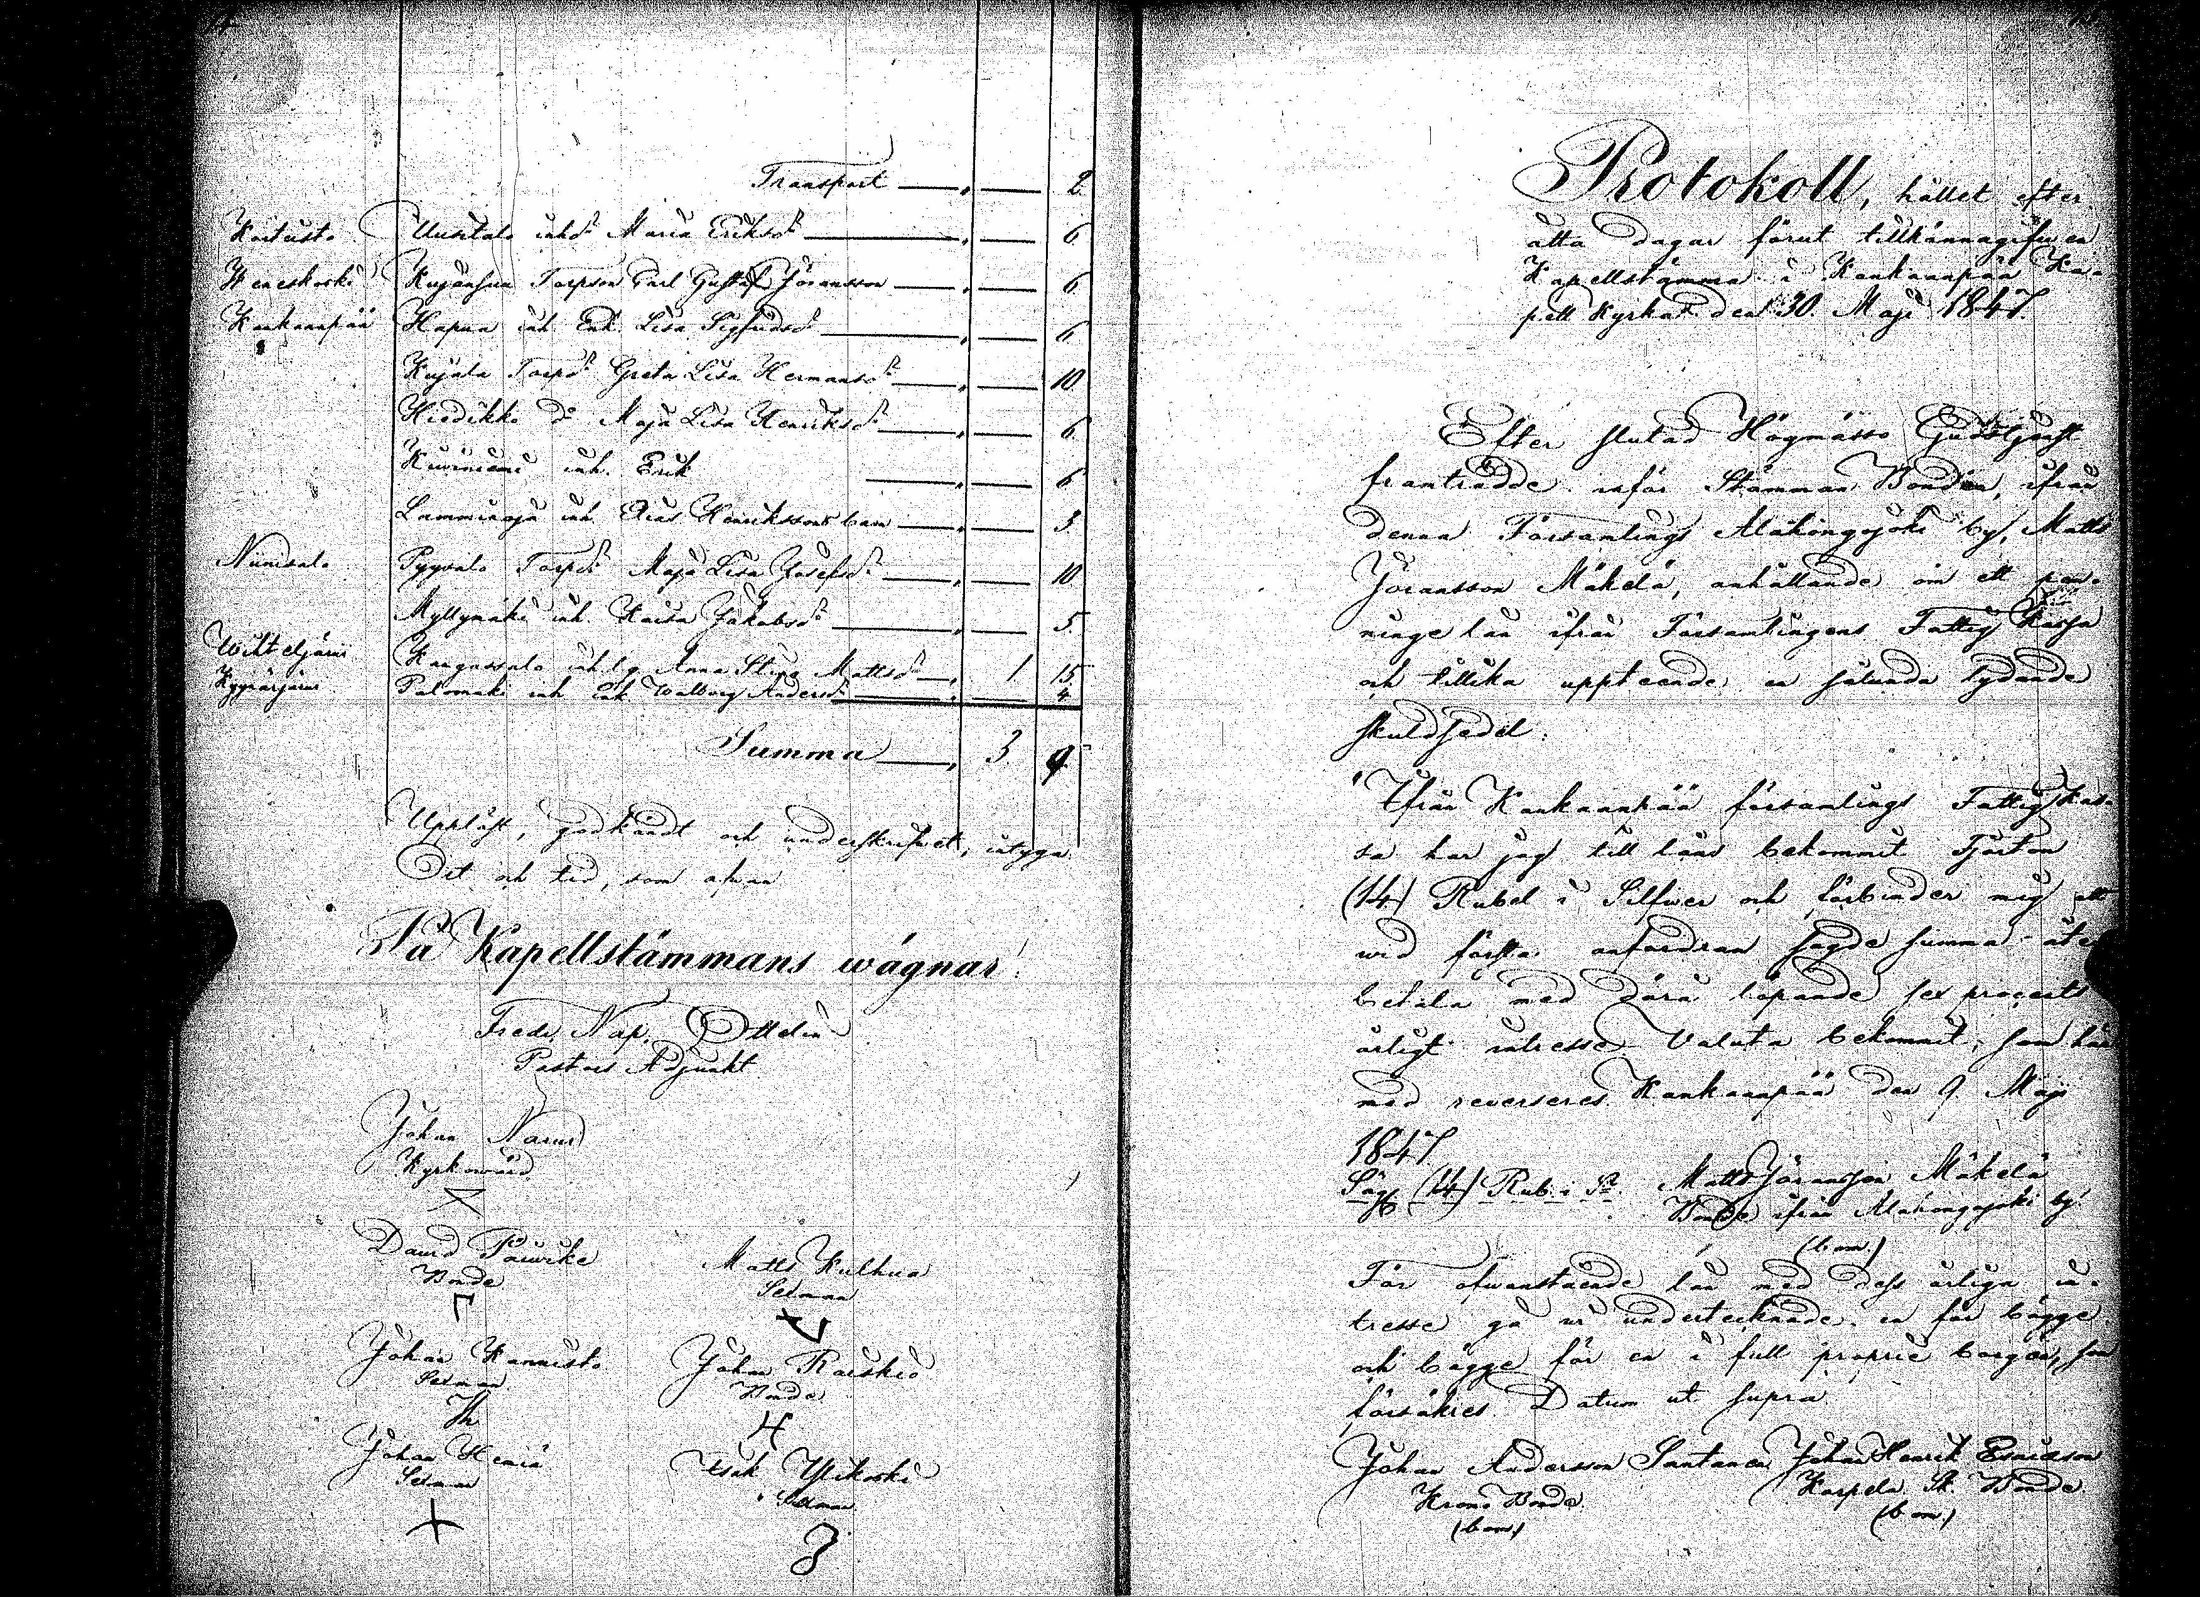 Transport — „ — 2
Koitusto Uusitalo inhs Maria Eriksdr — „ — 6
Weneskoski Kujansuu Torpson Carl Gustaf Jöransson — „ — 6
Kankaanpää Hapua inh. Enk. Lisa Sigfridsdr — „ — 6
Kujala Torpdr Greta Lisa Hermansdr — „ — 10
Hiedikko do Maja Lisa Henriksdr — „ — 6
Kuviniemi inh. Erik — „ — 6
Lamminoja inh. Henrikssons barn — „ — 3
Niinisalo Pyysalo Torpdr Maja Lisa Josefsdr — „ — 10
Myllymäki inh. Kaisa Jakobsdr — „ — 5
Wihteljärvi Kangassalo inh. Anna Stina Mattsdr — „ 1 15
Kyynärjärvi Palomäki inh Enk. Walborg Andersdr — „ — 4
Summa — „ 3 9
Uppläst, godkändt och underskrifvet, intyga
Ort och tid, som ofvan
På Kapellstämmans wägnar:
Fredr. Nap. Ottelin
Pastors Adjunkt
Johan Narvi
Kyrkovärd
David Päivike
Bonde
Matts Kulhua
Sexman
Johan Kannisto
Sexman
Johan Raiskio
Bonde
Johan Heniä
Sexman
Isak Ylikoski
Sexman
Protokoll, hållet efter
åtta dagar förut tillkännagifven
Kapellstämma i Kankaanpää Ka-
pell Kyrka den 30. Maji 1847.
Efter slutad Högmässo Gudstjenst
framträdde inför Stämman Bonden, ifrån
denna Församlings Alahongojoki by, Matts
Jöransson Mäkelä, anhållande om ett pen-
ninge lån ifrån Församlingens Fattig Kassa
och tillika uppteende en sålunda lydande
skuldsedel:
"Ifrån Kankaanpää församlings Fattigkas-
sa har jag till låns bekommit Fjorton
(14) Rubel i Silfwer och förbinder mig att
wid första anfordran sagde summa åter
betala med dära löpande sex procents
årligt intresse. Valuta bekommit, som här
med reverseres. Kankaanpää den 9. Maji
1847.
Säg (14) Rub. i Sr. Matts Jöransson Mäkelä
Bonde ifrån Alahongojoki by.
(bom.)
För ofwanstående lån med dess årliga in-
tresse gå wi undertecknade en för bägge
och bägge för en i full proprie borgen, som
försäkres. Datum ut supra
Johan Andersson Santanen Johan Henrik Esaiasson
Krono Bonde. Karpela Sk. Bonde
(bom.) (bom.)